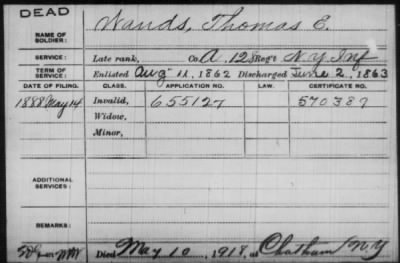 DEAD
NAME OF SOLDIER: Wands, Thomas E.
SERVICE: Late rank, Co. A, 128 Reg't N.Y. Inf
TERM OF SERVICE: Enlisted Aug 11, 1862 Discharged June 2, 1863
DATE OF FILING. CLASS. APPLICATION NO. LAW. CERTIFICATE NO.
1888 May 14 Invalid, 655127 570387
Widow,
Minor,
ADDITIONAL SERVICES:
REMARKS:
Died May 10, 1918, at Chatham N.Y